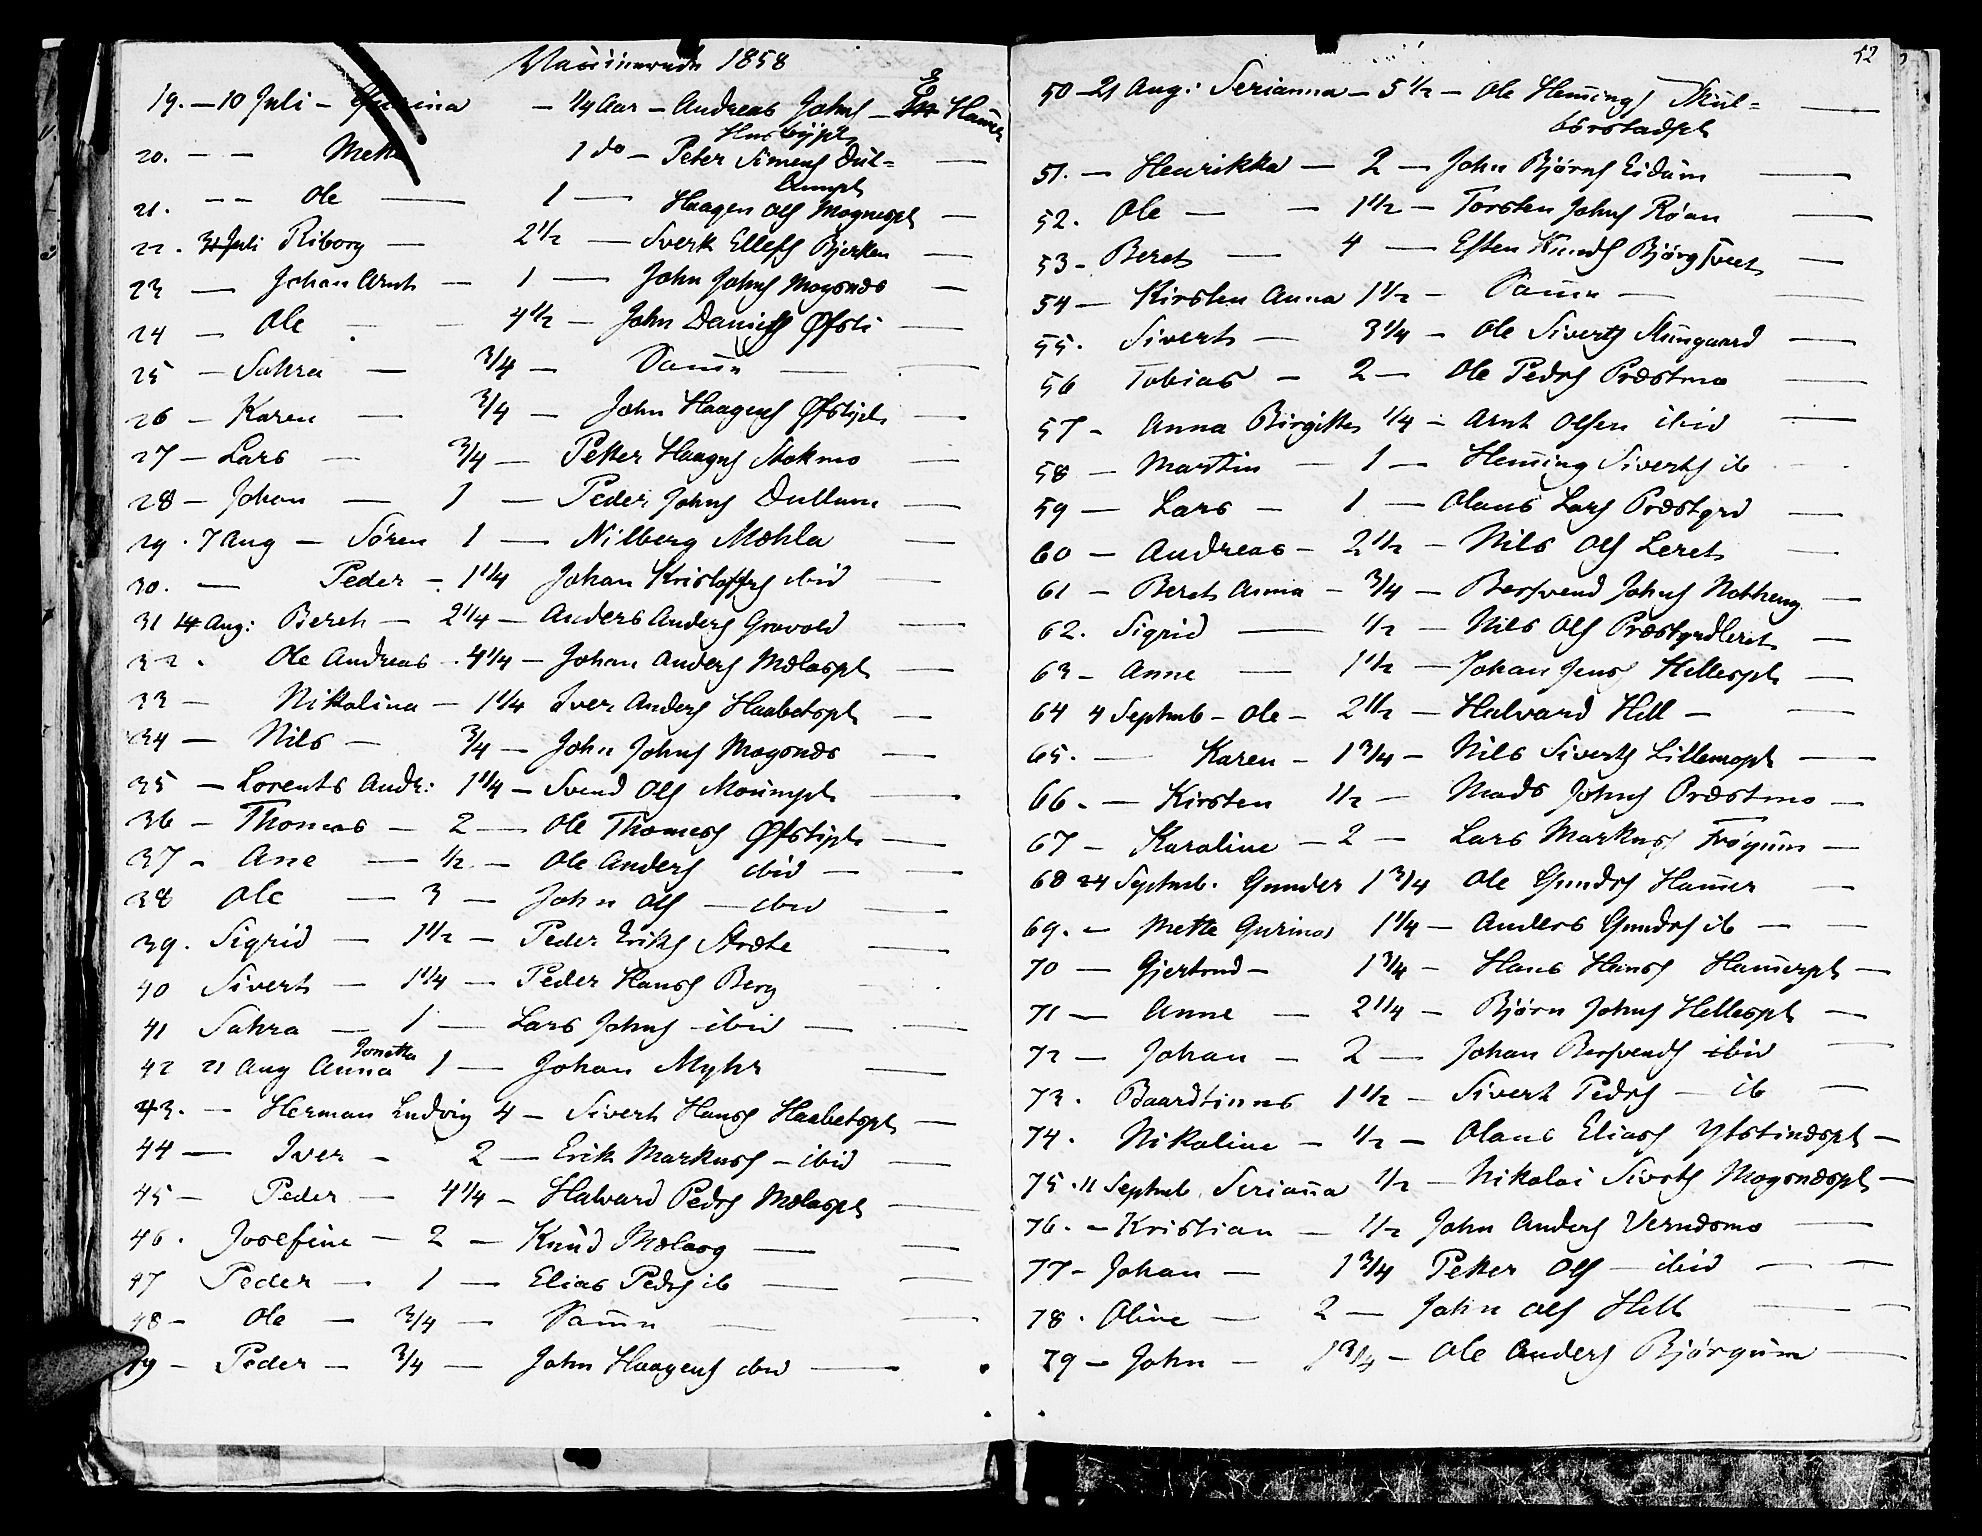 Vaccinerede 1858
19. — 10 Juli — — 1/4 Aar — Andreas Johns — Hamer
Husbypl
20. — — Mette 1 do — Peter Simens Dul=
lumpl
21. — — Ole — 1 — Haagen Ols Mognespl —
22. 31 Juli Riborg — 2 1/2 — Sverk Ellefs Bjerken —
23 — Johan Arnt — 1 — John Johns Mogsnæs —
24 — Ole — — 4 1/2 — John Daniels Øfsti —
25 — Sahra — 3/4 — Samn — —
26 — Karen — 3/4 — John Haagens Øfstipl —
27 — Lars — 3/4 — Petter Haagns Stokmo —
28 — Johan — 1 — Peder Johns Dullum —
29. 7 Aug — Sören 1 — Nilberg Mæhla —
30. — Peder — 1 1/4 Johan Kristoffs ibid —
31 14 Aug: Beret — 2 1/4 — Anders Anders Gravold —
32. Ole Andreas — 4 1/4 — Johan Anders Mælaspl —
33 — Nikolina — 1 1/4 Iver Anders Haabetspl —
34 — Nils — 3/4 — John Johns Mogsnæs —
35 — Lorents Andr: 1 1/4 — Svend Ols Moumpl —
36 — Thomas — 2 — Ole Thomass Øfstipl —
37 — Ane — 1/2 — Ole Anders ibid — —
38 Ole — 3 — John Ols — ibid —
39. Sigrid — 1 1/2 — Peder Eriks Stræte —
40 Sivert — 1 1/4 — Peder Hanss Berg
41 Sahra — 1 — Lars Johns ibid — —
Jonetta
42 21 Aug Anna 1 — Johan Myhr —
43. — Herman Ludvig 4 — Sivert Hanss Haabetspl —
44 — Iver — 2 — Erik Markuss — ibid —
45 — Peder — 4 1/4 — Halvard Peders Mælaspl —
46. Josefine — 2 — Knud Mælasg — —
47 Peder — 1 — Elias Peders ib — —
48 — Ole — 3/4 — Samn — —
49 — Peder — 3/4 — John Haagens ibid —
52
50 — 21 Aug: Serianna — 5 1/2 — Ole Hemings Skul= —
borstadpl
51. — Henrikka — 2 — John Bjørns Eidum —
52. Ole — — 1 1/2 — Torsten Johns Røan —
53 — Beret — 4 — Esten Knuds Bjørgtvet —
54 — Kirsten Anna 1 1/2 — Samn — —
55. Sivert — 3 1/4 — Ole Siverts Mungaard —
56 Tobias — 2 — Ole Peders Præstmo —
57 — Anna Birgitte 1/4 — Arnt Olsen ibid —
58 — Martin — 1 — Heming Siverts ib —
59 — Lars — 1 — Olaus Lars Præstgrd —
60 — Andreas — 2 1/2 — Nils Ols Leret —
61 — Beret Anna — 3/4 — Bersvend Johns Notheng —
62. Sigrid — 1/2 — Nils Ols Præstgrdleret —
63 — Anne — 1 1/2 — Johan Jens Hellespl —
64 4 Septmb — Ole — 2 1/2 — Halvard Hell — —
65. — Karen — 1 3/4 — Nils Siverts Lillemopl —
66. — Kirsten 1/2 — Mads Johns Præstmo —
67 — Karoline — 2 — Lars Markuss Frøgum —
68 24 Septmb. Gunder 1 3/4 Ole Gunders Hamer —
69. — Mette Gurina 1 1/4 — Anders Gunders ib — —
70 — Gjertrud — 1 3/4 — Hans Hanss Hamerpl —
71 — Anne — 2 1/4 — Bjørn Johns Hellespl —
72 — Johan — 2 — Johan Bersvends ibid —
73. Baardtinus 1 1/2 — Sivert Peders — ib —
74. Nikoline — 1/2 — Olaus Eliass Ytstinæspl —
75. 11 Septmb. Serianna 1/2 — Nikolai Siverts Mogsnæspl —
76. — Kristian — 1/2 John Anders Vernæsmo —
77 — Johan — 1 3/4 Petter Ols — ibid — —
78. Oline — 2 — John Ols Hell — —
79 — John — 1 3/4 — Ole Anders Bjørgum —